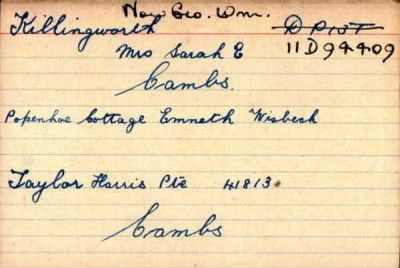 Now Geo. Wm.
Killingworth D P107
11D94409
Mrs Sarah E
Cambs.
Popenhoe Cottage Emneth Wisbech
Taylor Harris Pte 41813.
Cambs